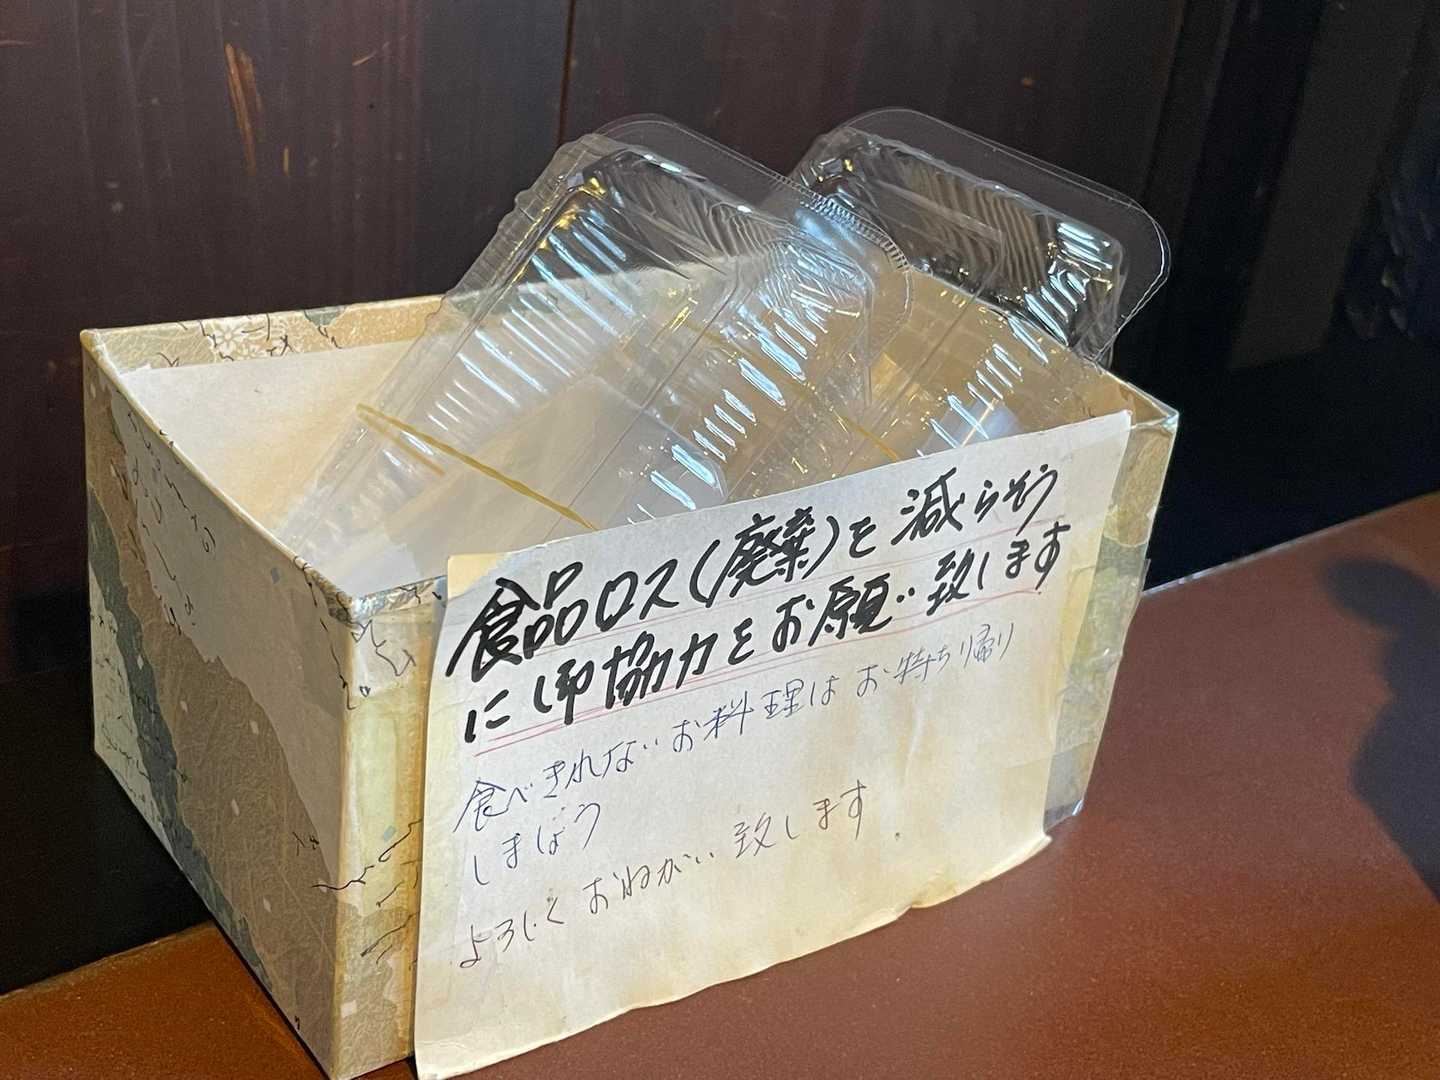 食品ロス(廃棄)を減らそう
に御協力をお願い致します
食べきれないお料理はお持ち帰り
しましょう
よろしくおねがい致します。